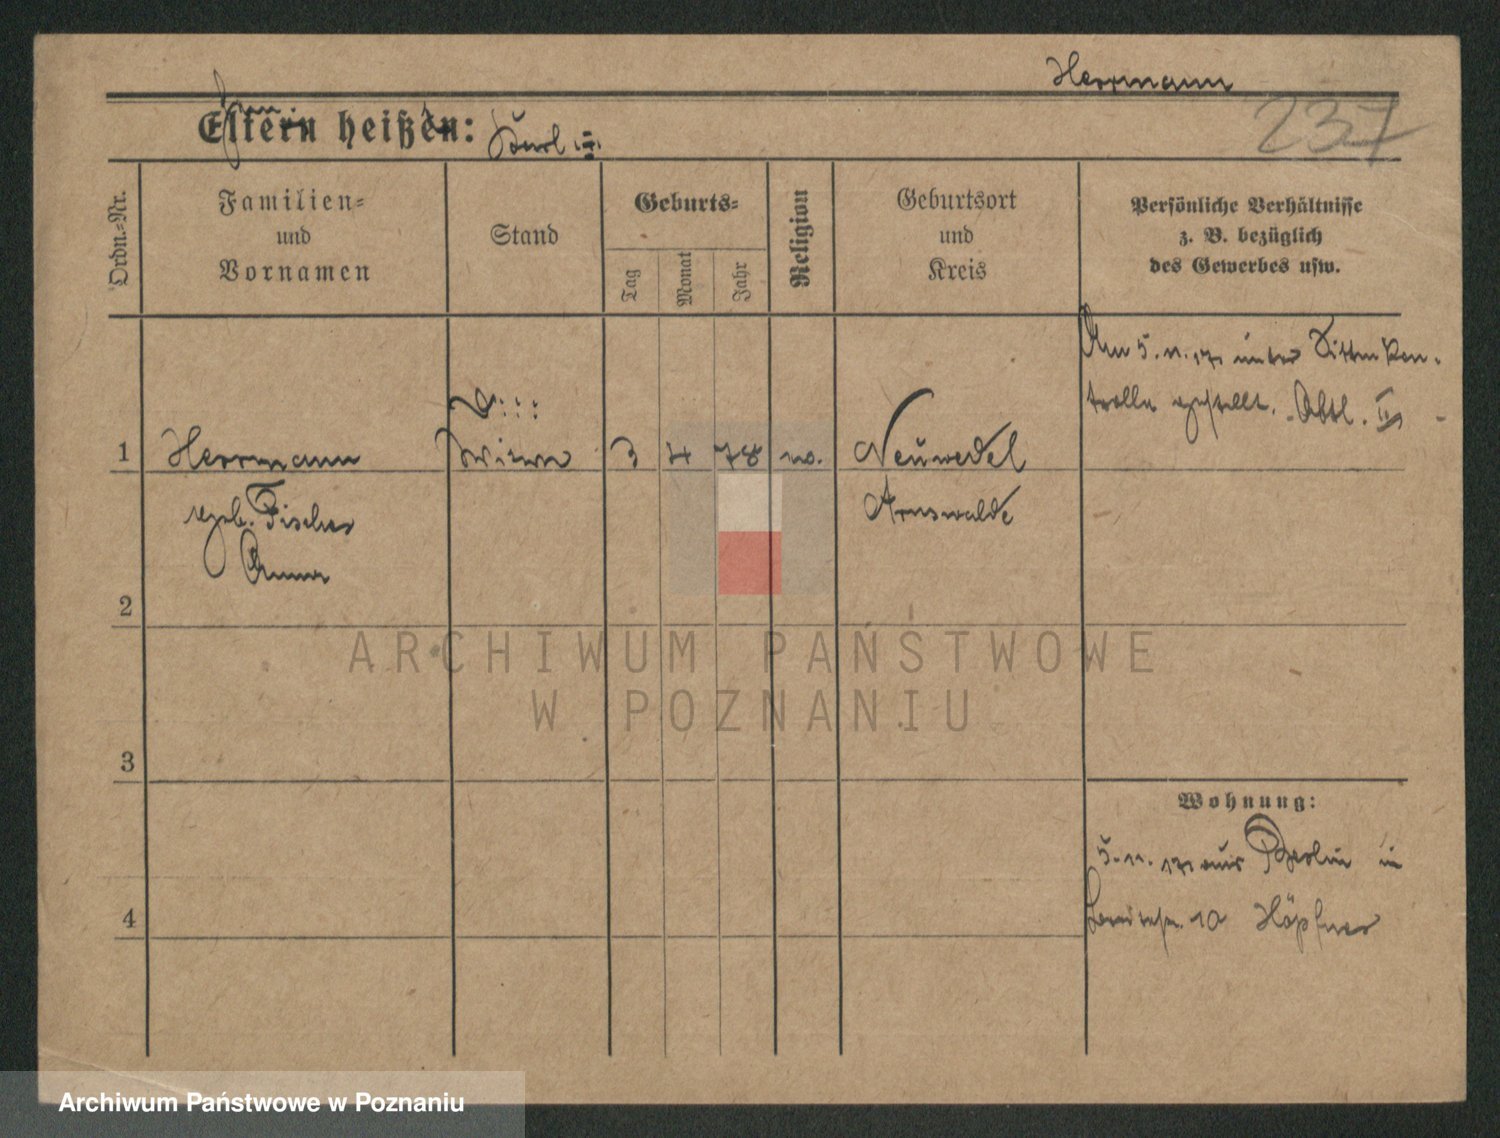 Herrmann
237
Eltern heißen: Karl
Ordn.-Nr.
Familien-
und
Vornamen
Stand
Geburts-
Tag
Monat
Jahr
Religion
Geburtsort
und
Kreis
Persönliche Verhältnisse
z. B. bezüglich
des Gewerbes usw.
Am 5. 11. 17 unter Sitten Kon-
trolle gestellt. Abtl. II
1 Herrmann Witwe 3 4 78 Neuwedel
geb. Fischer Arnswalde
Anna
2
3
4
Wohnung:
5. 11. 17 aus Berlin in
10 Höpfner
ARCHIWUM PAŃSTWOWE
W POZNANIU
Archiwum Państwowe w Poznaniu